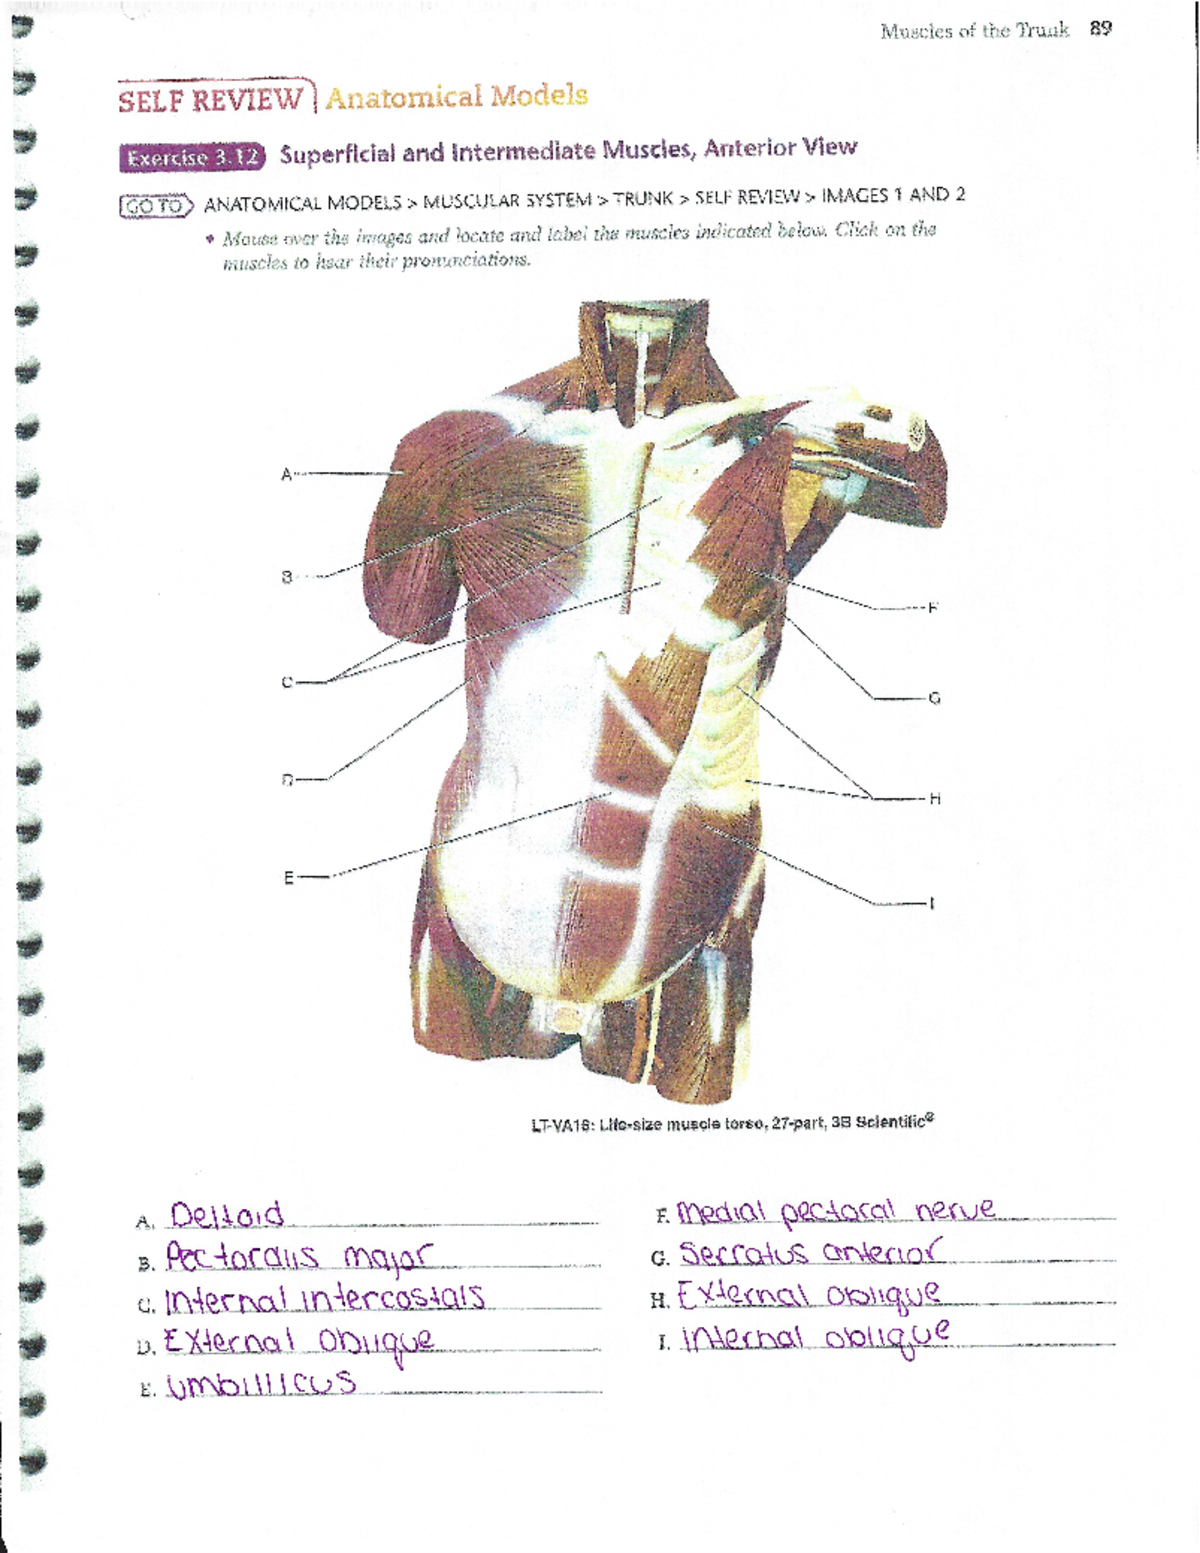 Muscles of the Trunk 89
SELF REVIEW Anatomical Models
Exercise 3.12 Superficial and Intermediate Muscles, Anterior View
GO TO ANATOMICAL MODELS > MUSCULAR SYSTEM > TRUNK > SELF REVIEW > IMAGES 1 AND 2
• Mouse over the images and locate and label the muscles indicated below. Click on the
muscles to hear their pronunciations.
A
B
F
C
G
D
H
E
I
LT-VA16: Life-size muscle torso, 27-part, 3B Scientific®
A. Deltoid
B. Pectoralis major
C. Internal intercostals
D. External Oblique
E. Umbillicus
F. Medial pectoral nerve
G. Serratus anterior
H. External oblique
I. Internal oblique